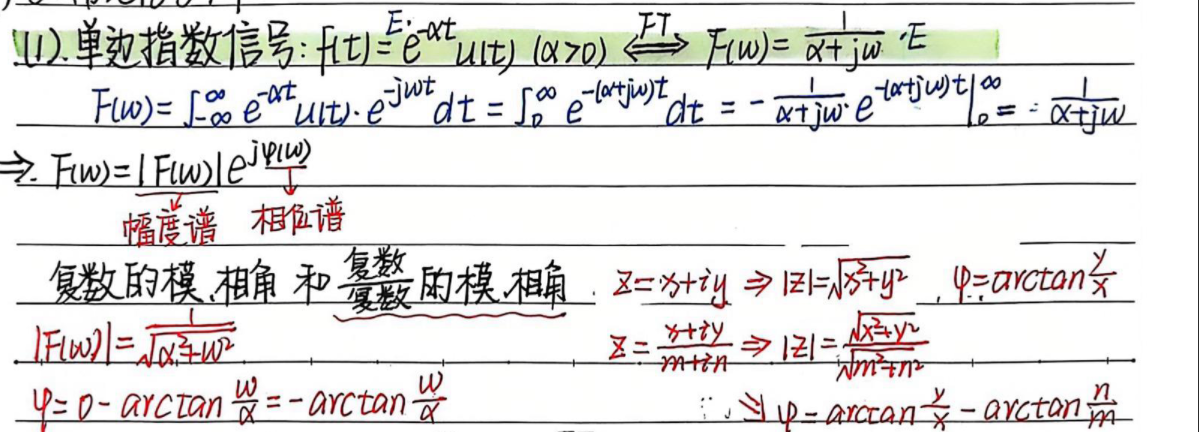 (1).单边指数信号: f(t)=E·e^{-αt}u(t) (α>0) ⟺^{FT} F(ω)=\frac{1}{α+jω}·E
F(ω)=∫_{-∞}^{∞} e^{-αt}u(t)·e^{-jωt}dt=∫_0^∞ e^{-(α+jω)t}dt=-\frac{1}{α+jω}·e^{-(α+jω)t}|_0^∞=\frac{1}{α+jω}
⇒. F(ω)=|F(ω)|e^{jφ(ω)}
幅度谱 相位谱
复数的模、相角 和 \frac{复数}{复数} 的模、相角. z=x+iy ⇒ |z|=\sqrt{x²+y²}, φ=arctan\frac{y}{x}
|F(ω)|=\frac{1}{\sqrt{α²+ω²}} z=\frac{x+iy}{m+in} ⇒ |z|=\frac{\sqrt{x²+y²}}{\sqrt{m²+n²}}
φ=0-arctan\frac{ω}{α}=-arctan\frac{ω}{α} ⇒ φ=arctan\frac{y}{x}-arctan\frac{n}{m}